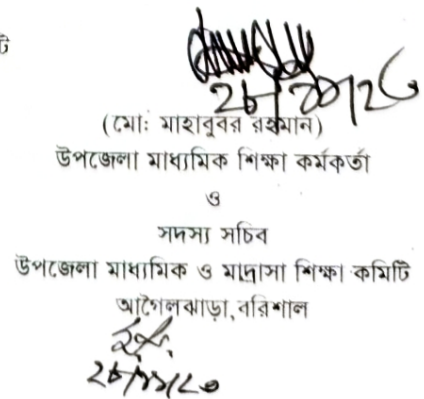 টি
(মোঃ মাহাবুবর রহমান)
উপজেলা মাধ্যমিক শিক্ষা কর্মকর্তা
ও
সদস্য সচিব
উপজেলা মাধ্যমিক ও মাদ্রাসা শিক্ষা কমিটি
আগৈলঝাড়া,বরিশাল